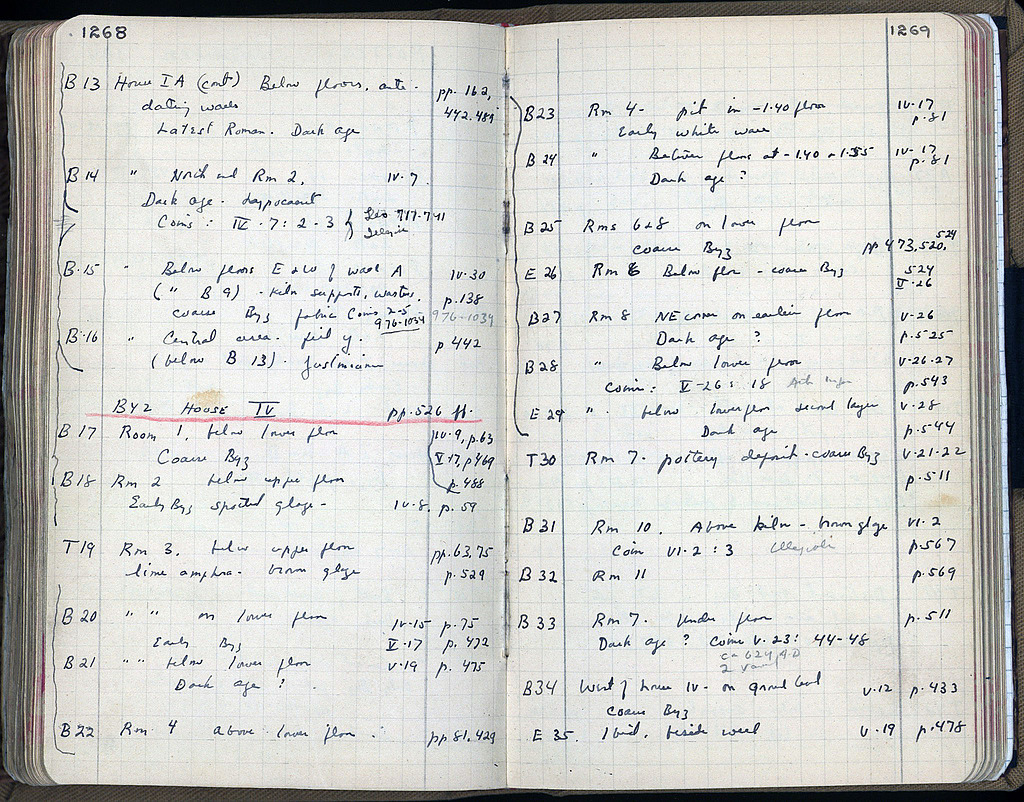 1268
B 13 House I A (cont) Below floors, ante- pp. 162,
dating walls 442.489
Latest Roman. Dark age
B 14 " North end Rm 2, IV-7
Dark age.
Coins: IV-7: 2-3 } Leo 717-741
B-15 " Below floors E & W of wall A IV-30
(" B 9) - kiln supports, wasters. p.138
coarse Byz fabric Coins 2-5 976-1034
976-1034
B-16 " Central area. p 442
(below B 13). Justinian
BYZ HOUSE IV pp.526 ff.
B 17 Room 1, below lower floor IV-9, p.63
Coarse Byz V-17, p469
p.488
B18 Rm 2 below upper floor
Early Byz spotted glaze - IV-8, p.59
T 19 Rm 3, below upper floor pp.63,75
lime amphora- brown glaze p.529
B 20 " " on lower floor IV-15 p.75
Early Byz V-17 p.472
B 21 " " below lower floor V-19 p. 475
Dark age ?
B 22 Rm 4 above lower floor pp 81,429
1269
B23 Rm 4- pit in -1.40 floor IV-17
Early white ware p.81
B 24 " Between floors at -1.40 & -1.55 IV-17
Dark age ? p.81
B25 Rms 6&8 on lower floor
coarse Byz pp 473,520, 524
E 26 Rm 8 Below floor - coarse Byz 524
V-26
B27 Rm 8 NE corner on earlier floor V-26
Dark age ? p.525
B 28 " Below lower floor V-26-27
Coins: V-26: 18 p.543
E 29 " below lower floor second layer V-28
Dark age p.544
T30 Rm 7. pottery deposit - coarse Byz V-21-22
p.511
B31 Rm 10. Above kiln - brown glaze VI-2
Coin VI-2: 3 p.567
B 32 Rm 11 p.569
B 33 Rm 7. Under floor p.511
Dark age ? Coins V-23: 44-48
ca 624 A.D
2
B34 West of house IV- on ground level V-12 p.433
coarse Byz
E 35. beside well V-19 p.478